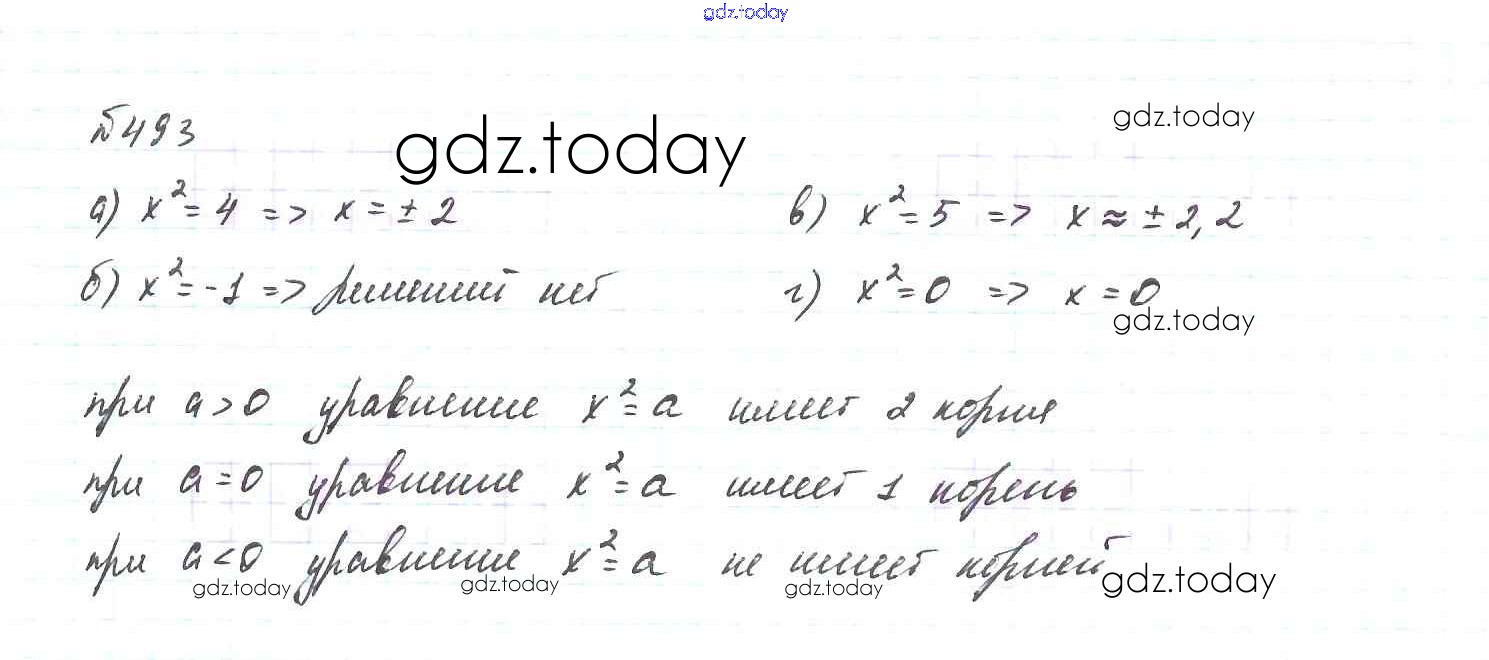 gdz.today
№493
gdz.today
gdz.today
а) x²=4 => x=±2
в) x²=5 => x≈±2,2
б) x²=-1 => решений нет
г) x²=0 => x=0
gdz.today
при a>0 уравнение x²=a имеет 2 корня
при a=0 уравнение x²=a имеет 1 корень
при a<0 уравнение x²=a не имеет корней
gdz.today
gdz.today
gdz.today
gdz.today